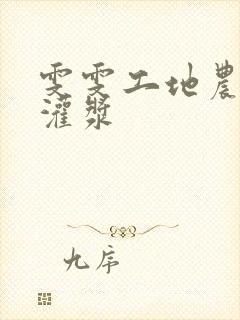 雯雯工地農
灌漿
九序